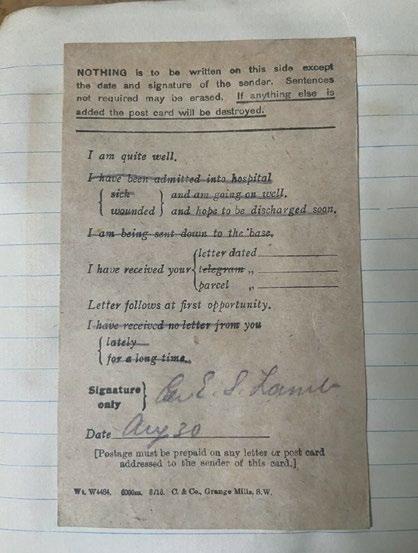 NOTHING is to be written on this side except
the date and signature of the sender. Sentences
not required may be erased. If anything else is
added the post card will be destroyed.
I am quite well.
I have been admitted into hospital
sick and am going on well.
wounded and hope to be discharged soon.
I am being sent down to the base.
letter dated
I have received your telegram „
parcel „
Letter follows at first opportunity.
I have received no letter from you
lately
for a long time.
Signature
only
E. S. Lamb
Date Aug 30
[Postage must be prepaid on any letter or post card
addressed to the sender of this card.]
Wt. W4494. 8/15. C. & Co., Grange Mills, S.W.